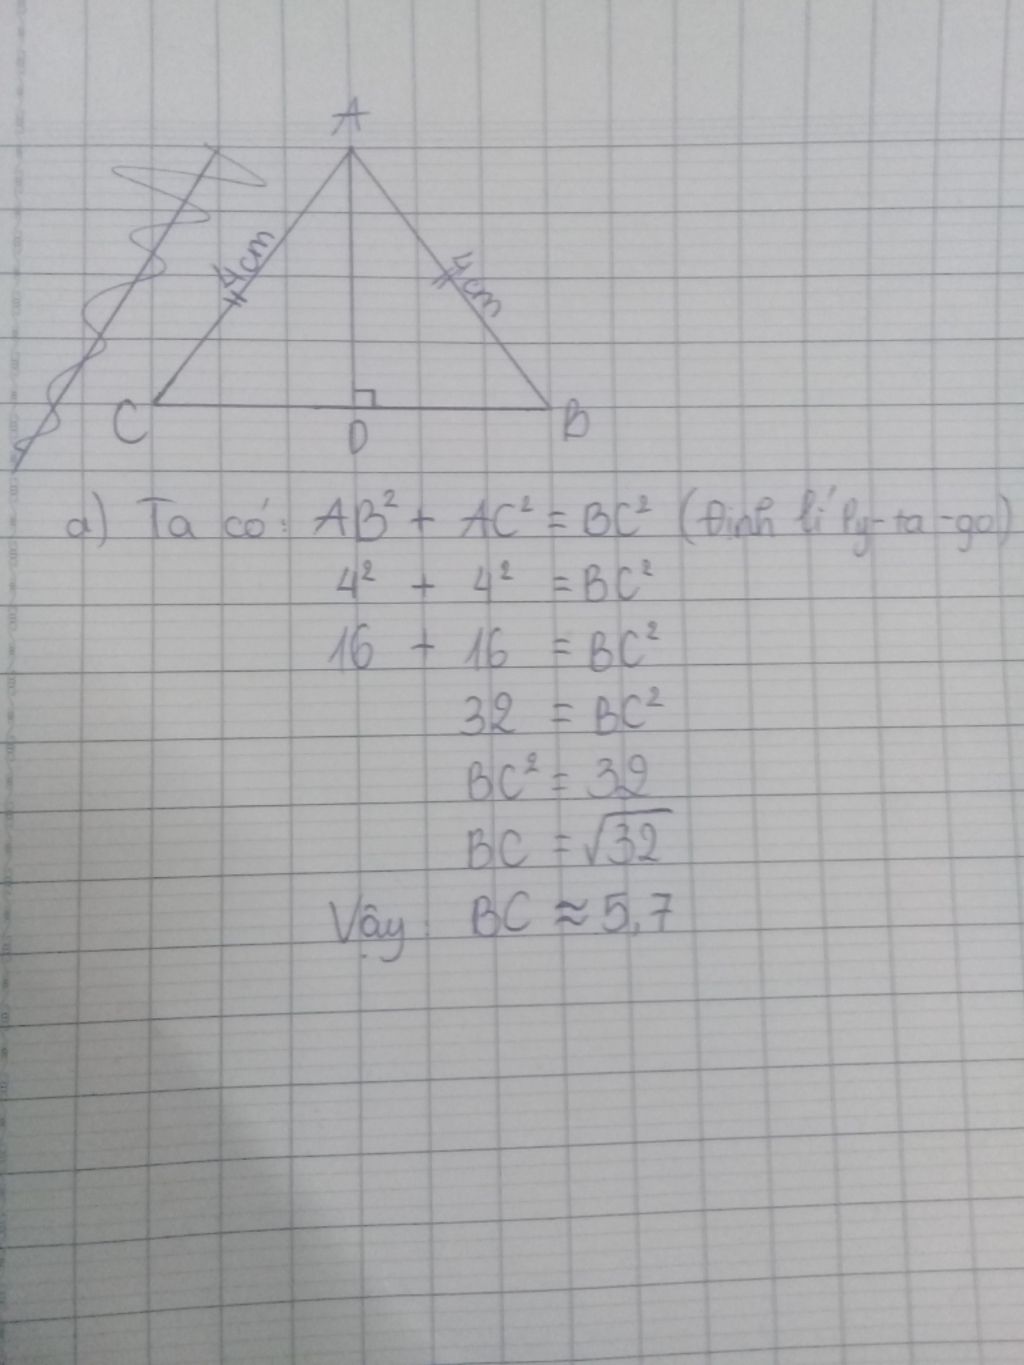 A
4cm
4cm
C
D
B
a) Ta có: AB² + AC² = BC² (Định lí Py-ta-go)
4² + 4² = BC²
16 + 16 = BC²
32 = BC²
BC² = 32
BC = √32
Vậy: BC ≈ 5,7